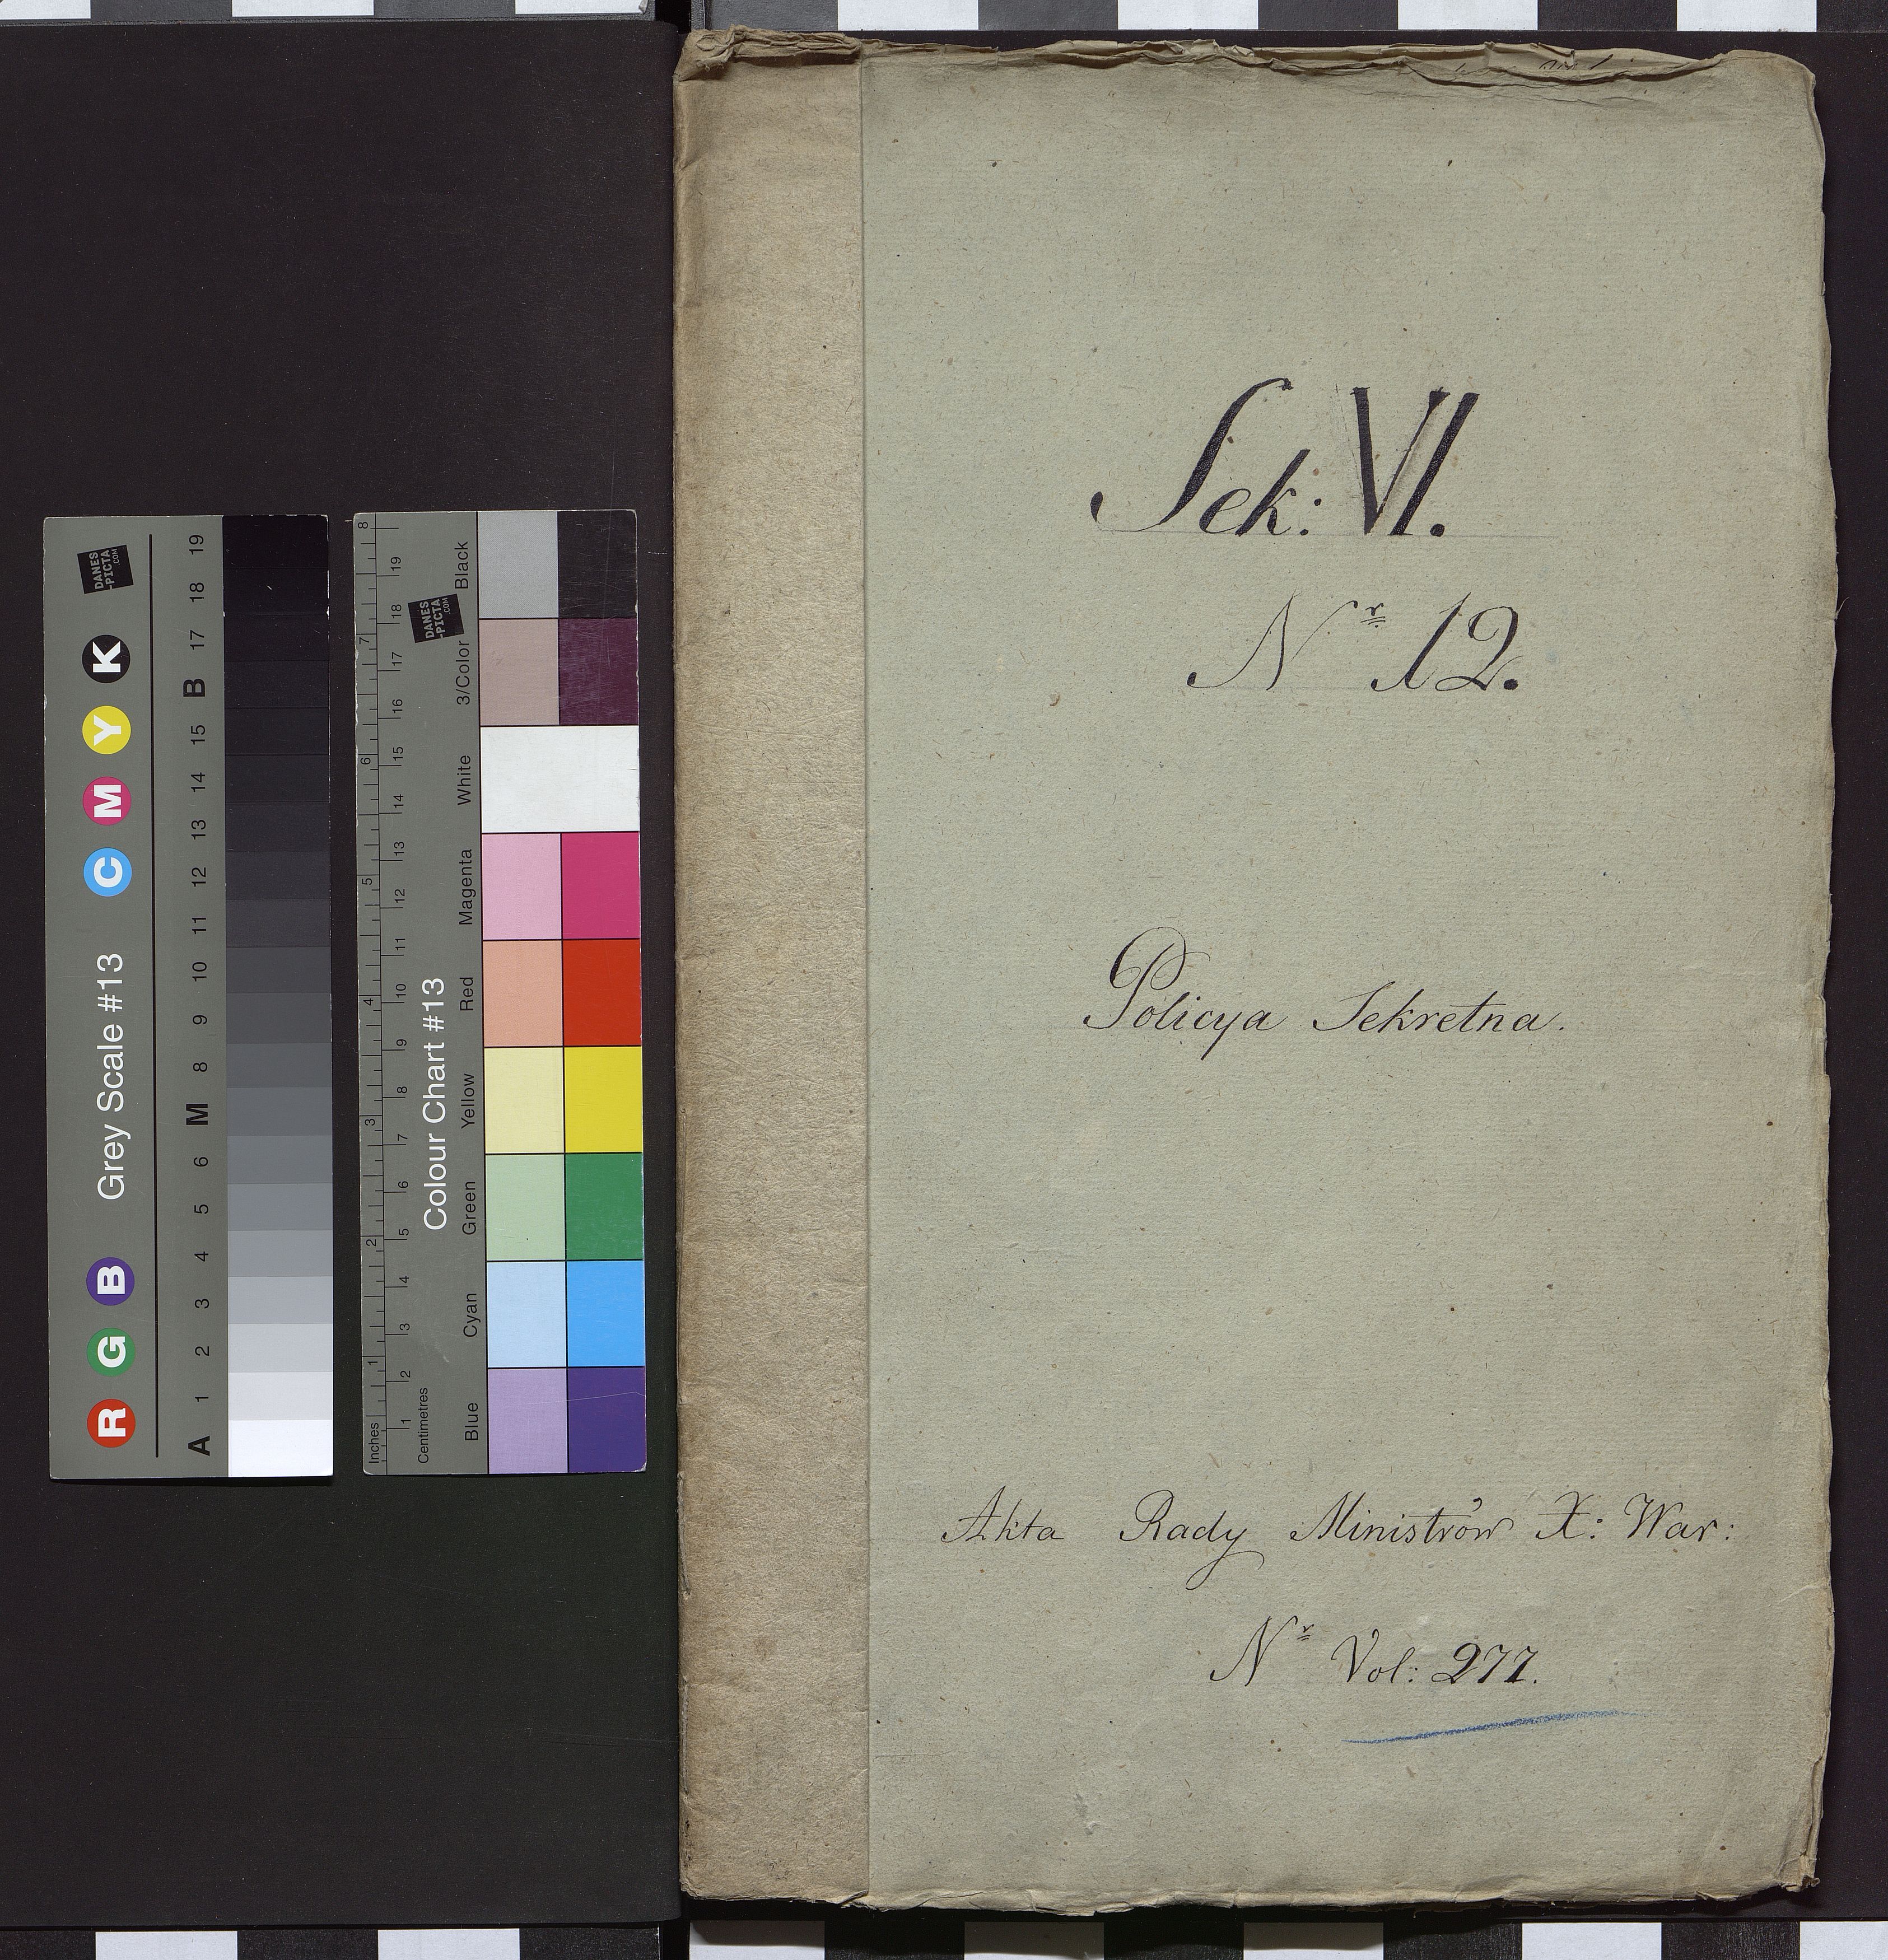 Sek: VI.
Nr 12.
Policya Sekretna.
Akta Rady Ministrów X: War:
Nr Vol: 277.
DANES
-PICTA
.COM
Grey Scale #13
R G B C M Y K
A 1 2 3 4 5 6 M 8 9 10 11 12 13 14 15 B 17 18 19
DANES
-PICTA
.COM
Colour Chart #13
Blue Cyan Green Yellow Red Magenta White 3/Color Black
Inches 1 2 3 4 5 6 7 8
Centimetres 1 2 3 4 5 6 7 8 9 10 11 12 13 14 15 16 17 18 19